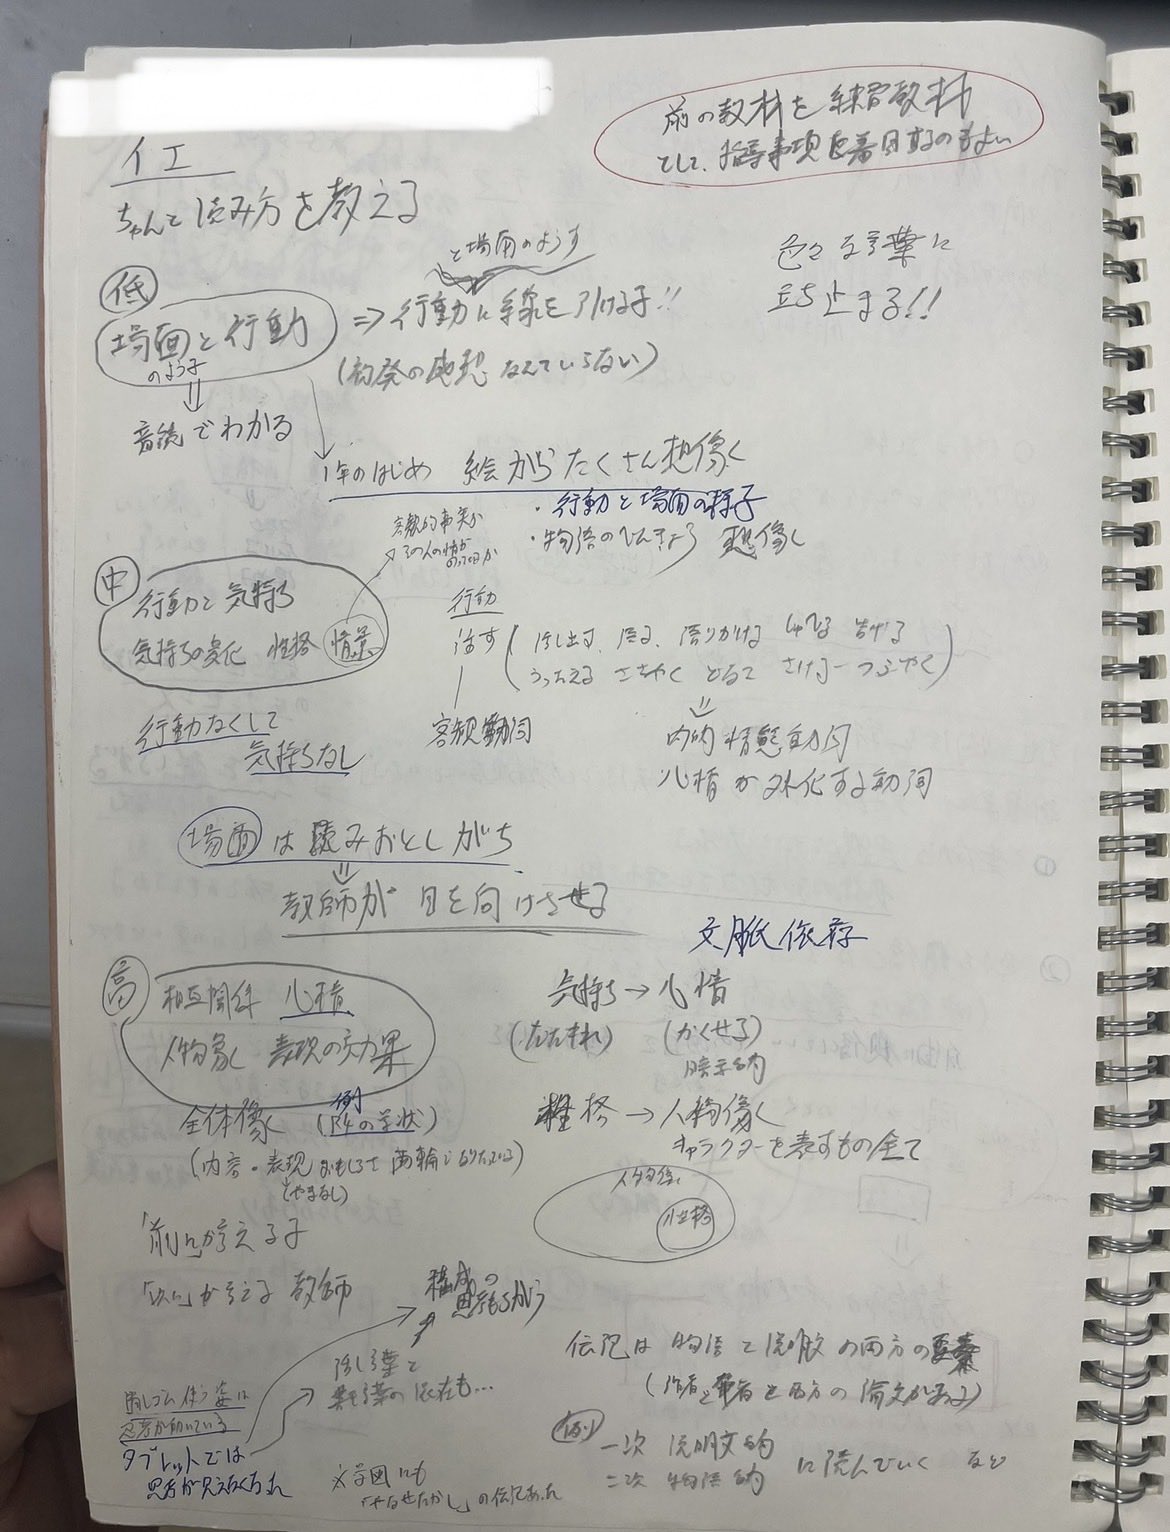 前の教材を練習教材
として、指導事項を着目するのもよい
イエ
ちゃんと読み方を教える
色々な言葉に
立ち止まる!!
と場面のようす
低
場面と行動
のようす
⇒行動に線を引ける子!!
(初発の感想なんていらない)
⇓
音読でわかる
1年のはじめ 絵からたくさん想像
・行動と場面の様子
・物語のひんきょう 想像し
客観的事実か
その人の情が
のっているか
中
行動と気持ち
気持ちの変化 性格 情景
行動
話す
(話し出す、語る、語りかける しゃべる 告げる
うったえる ささやく どなる さけぶ つぶやく)
客観動詞
⇓
内的情態動詞
心情が外化する動詞
行動なくして
気持ちなし
場面は読みおとしがち
⇓
教師が目を向けさせる
文脈依存
高
相互関係 心情
人物像 表現の効果
全体像 (例
R4の学状)
(内容・表現 おもしろさ 両輪で なりたっている)
(やまなし)
気持ち→心情
(たたきれ) (かくせる)
暗示的
性格→人物像
キャラクターを表すもの全て
人物像
性格
「前に」が言える子
「次に」が言える教師
構成の
思考もちがう
話し言葉と
書き言葉の混在も…
消しゴム使う姿は
思考が動いている
タブレットでは
思考が見えなくなった
※学図にも
「やなせたかし」の伝記あった
伝記は物語と説明文の両方の要素
(作者と筆者と両方の論文がある)
例
一次 説明文的
二次 物語的
に読んでいくなど